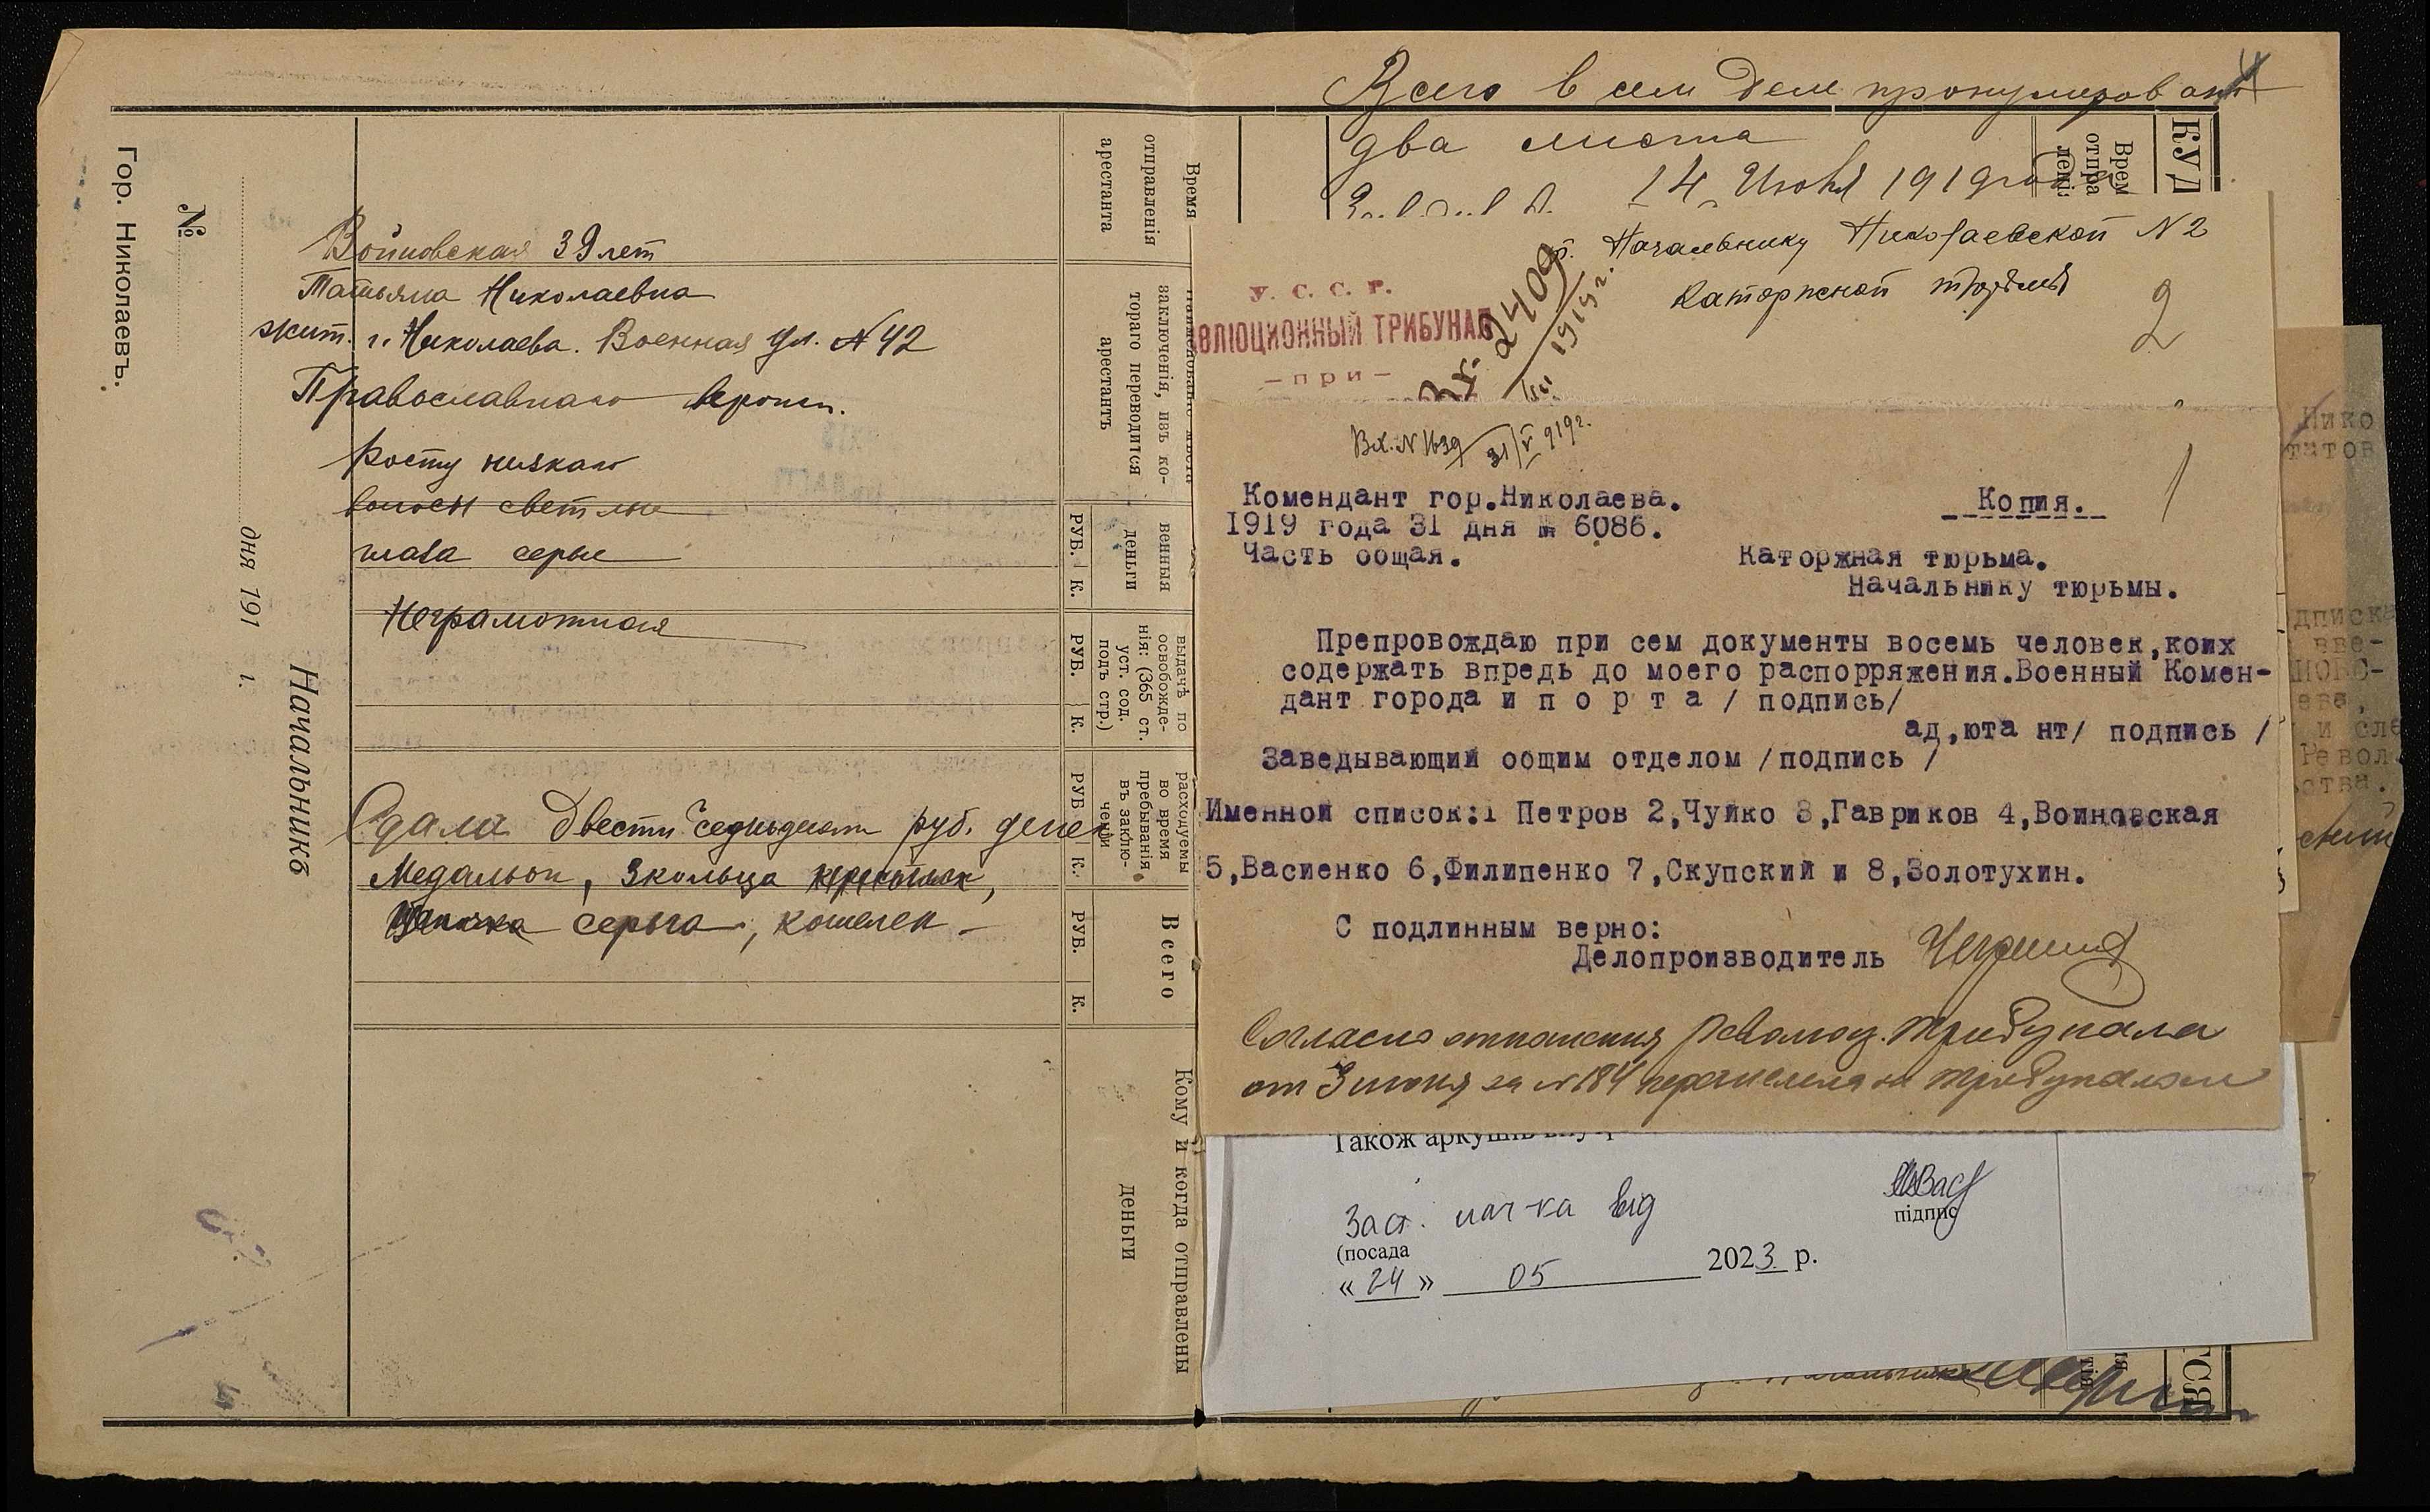 Гор. Николаевъ.
№
дня 191 г.
Начальникъ
Войновская 39 лет
Татьяна Николаевна
жит. г. Николаева. Военная ул. № 42
Православнаго вероисп.
Росту низкаго
волосы светлые
глаза серые
Неграмотная
Сдала Двести седмьдесят руб. денег
Медальон, 3 кольца
серьга, кошелек
Время
отправленія
арестанта
заключенія, изъ ко-
тораго переводится
арестантъ
венныя
деньги
РУБ. К.
выдачѣ по
освобожде-
нія: (365 ст.
уст. сод.
подъ стр.)
РУБ. К.
расходуемы
во время
пребыванія
въ заклю-
ченіи
РУБ К.
Всего
РУБ. К.
Кому и когда отправлены
деньги
Всего в сем Деле пронумерован
два листа
14 Июня 1919 года
КУД
Врем
отпра
лені
Начальнику Николаевской № 2
Каторжной тюрьмы
2
У. С. С. Р.
ВОЛЮЦИОННЫЙ ТРИБУНАЛ
— при —
2409
1919 г.
Вх. № 1639 31/V 919 г.
1
Комендант гор.Николаева.
Копия.
1919 года 31 дня № 6086.
Часть общая.
Каторжная тюрьма.
Начальнику тюрьмы.
Препровождаю при сем документы восемь человек,коих
содержать впредь до моего распорряжения.Военный Комен-
дант города и п о р т а / подпись/
ад,юта нт/ подпись /
Заведывающий общим отделом /подпись /
Именной список:1 Петров 2,Чуйко 3,Гавриков 4,Воиновская
5,Васиенко 6,Филипенко 7,Скупский и 8,Золотухин.
С подлинным верно:
Делопроизводитель
Согласно отношения Революц. Трибунала
от 3 июня за № 184 перечислена за трибуналом
Нико
татов
дписка
вве-
НОВС-
ева,
и сле
Револ
ства.
Також аркушів
Заст. нач-ка від
(посада
підпис
« 24 » 05 2023 р.
ТСЯ